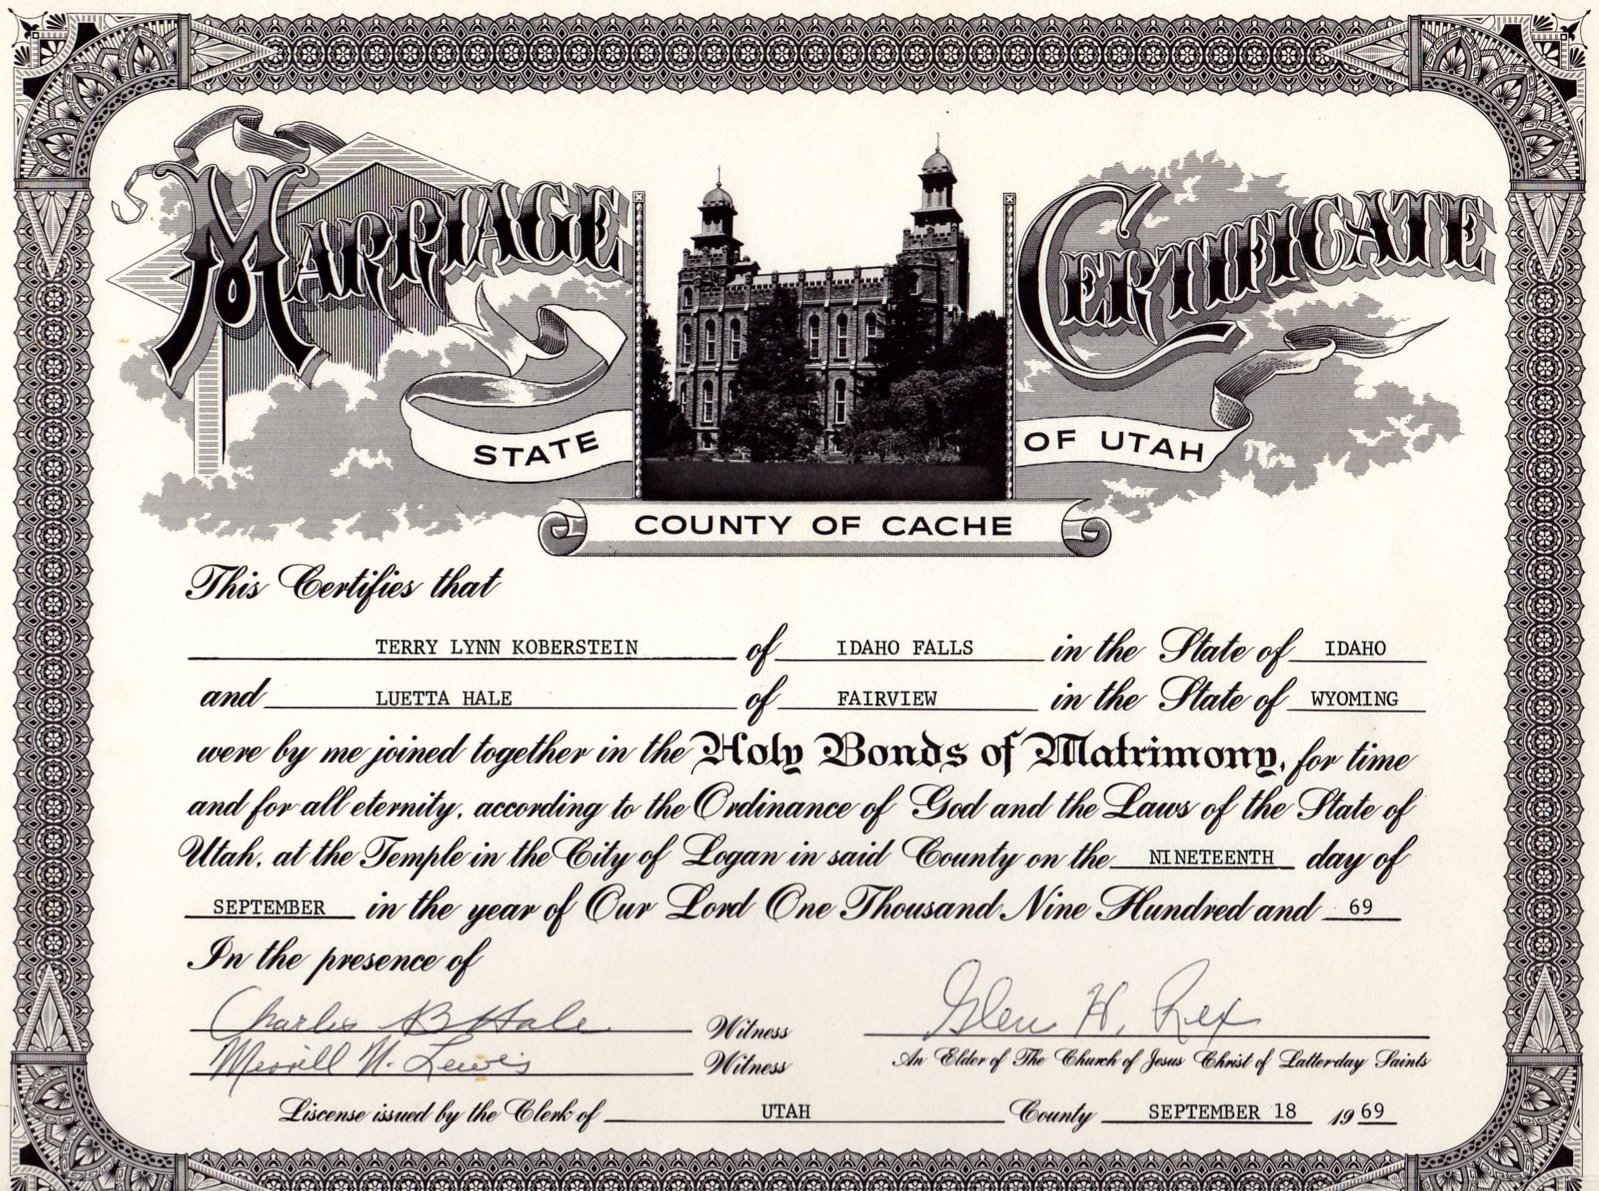 MARRIAGE CERTIFICATE
STATE OF UTAH
COUNTY OF CACHE
This Certifies that
TERRY LYNN KOBERSTEIN of IDAHO FALLS in the State of IDAHO
and LUETTA HALE of FAIRVIEW in the State of WYOMING
were by me joined together in the Holy Bonds of Matrimony, for time
and for all eternity, according to the Ordinance of God and the Laws of the State of
Utah, at the Temple in the City of Logan in said County on the NINETEENTH day of
SEPTEMBER in the year of Our Lord One Thousand Nine Hundred and 69
In the presence of
Charles B Hale Witness
Glen H. Rex
Merrill N. Lewis Witness
An Elder of The Church of Jesus Christ of Latter-day Saints
Liscense issued by the Clerk of UTAH County SEPTEMBER 18 1969